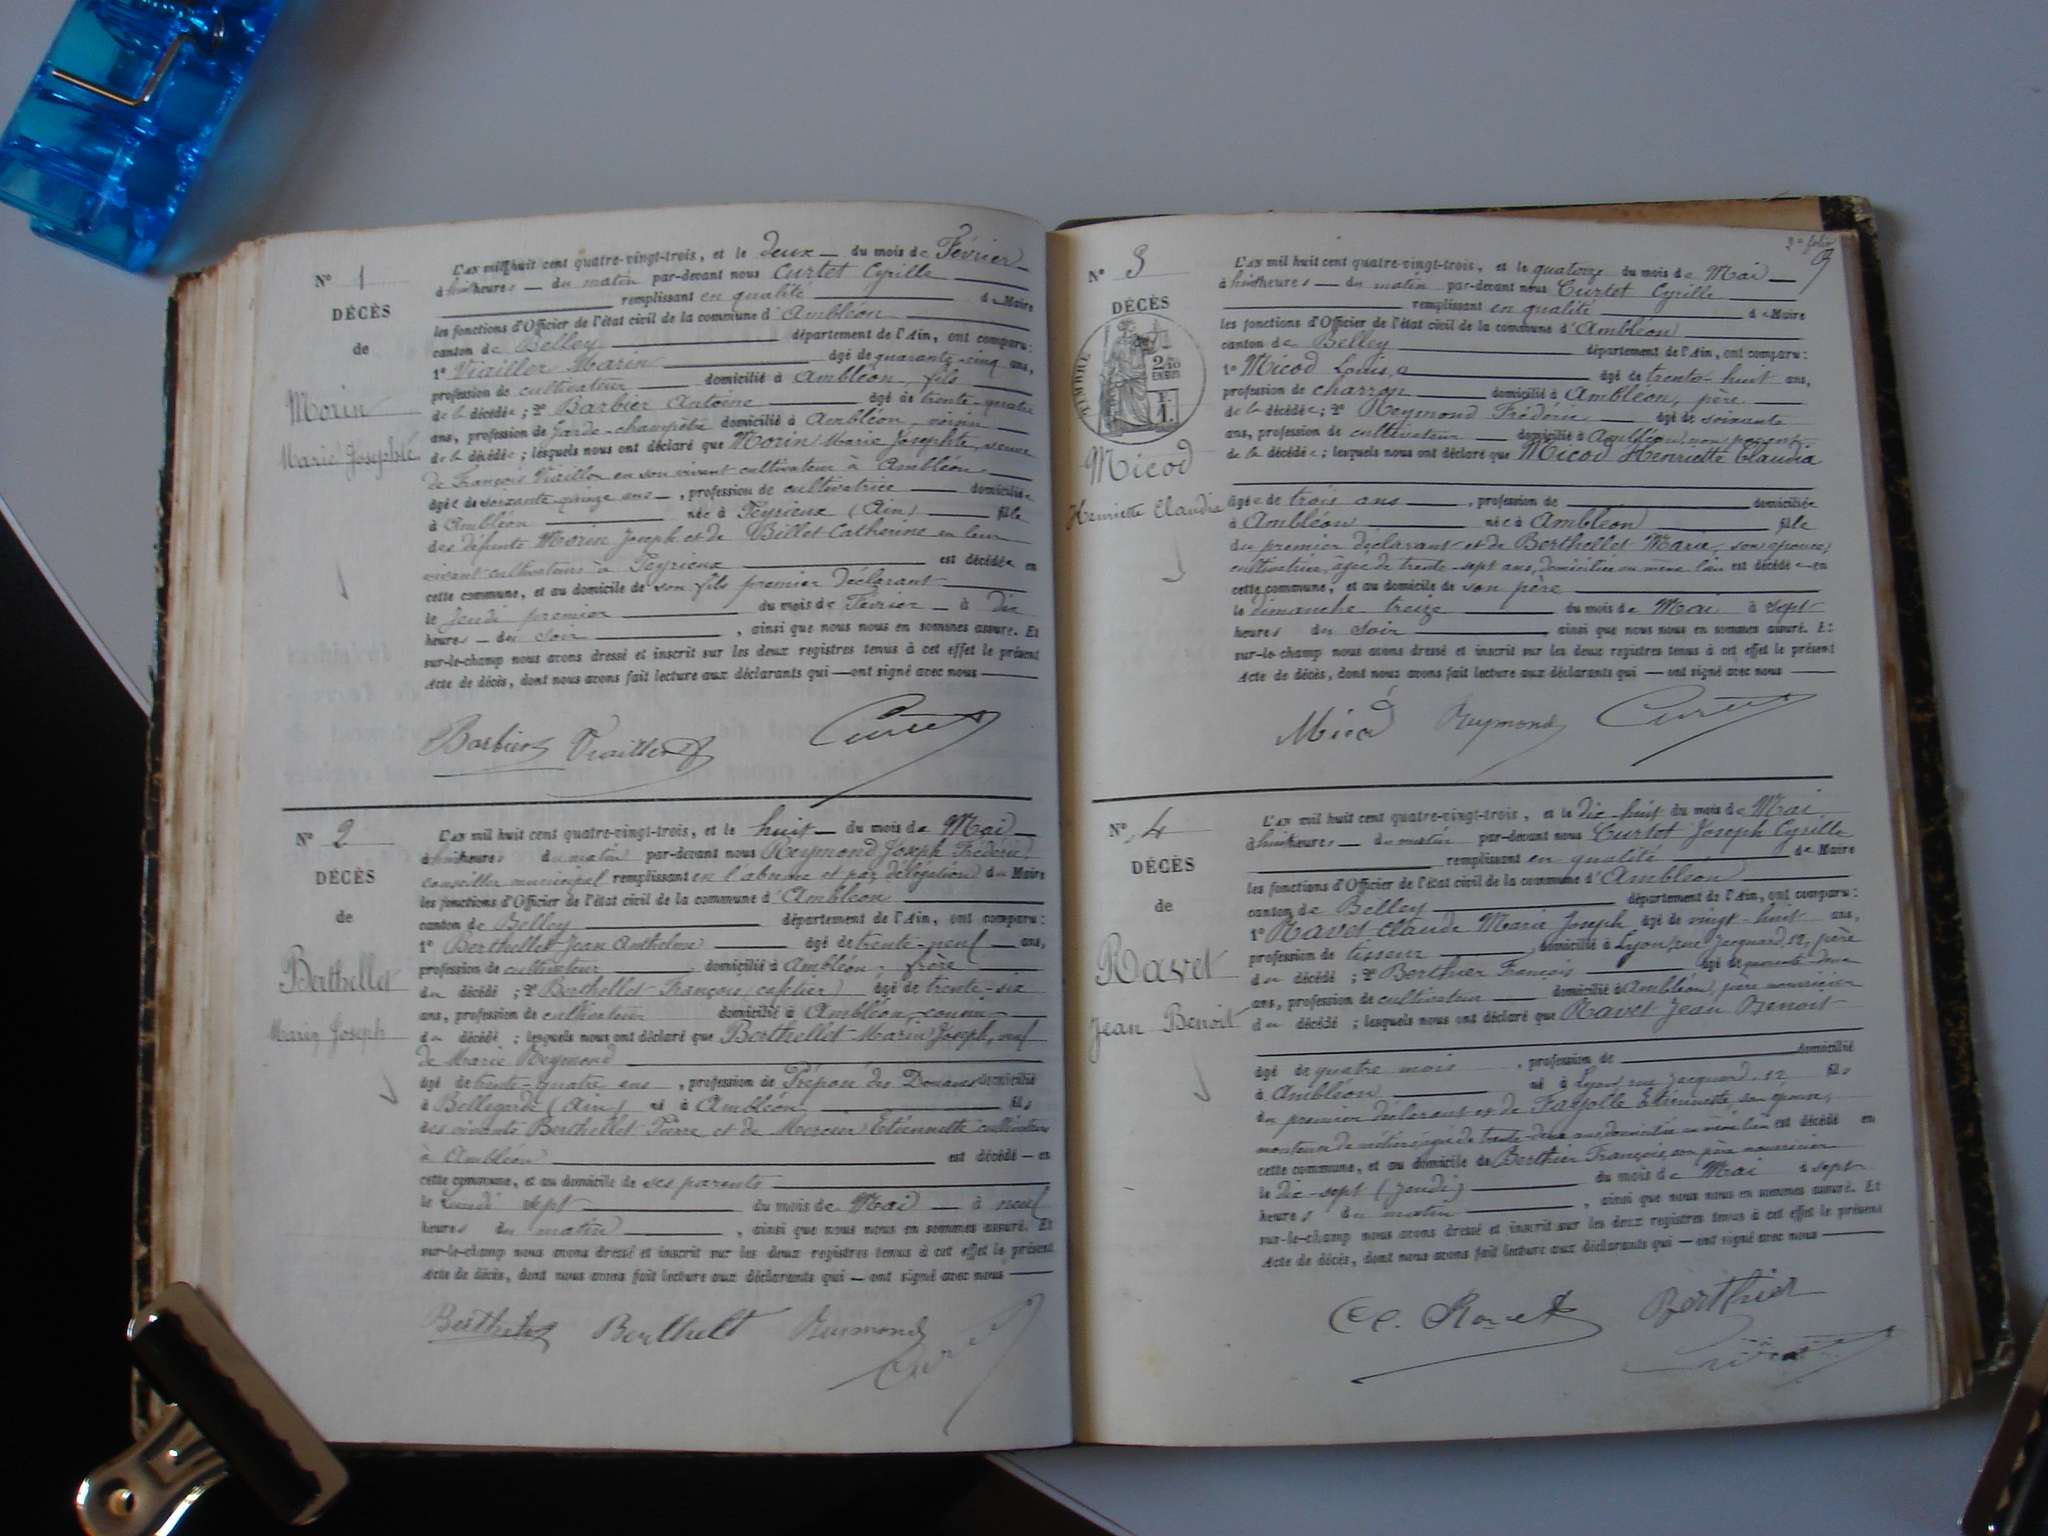 N° 1
DÉCÈS
de
Morin
Marie Josephte
L'AN mil huit cent quatre-vingt-trois, et le deux — du mois de Février
à huit heures — du matin par-devant nous Curtet Cyrille
remplissant en qualité de Maire
les fonctions d'Officier de l'état civil de la commune d'Ambléon
canton de Belley département de l'Ain, ont comparu:
1° Viailler Marin âgé de quarante-cinq ans,
profession de cultivateur domicilié à Ambléon, fils
de la décédée; 2° Barbier Antoine âgé de trente-quatre
ans, profession de garde-champêtre domicilié à Ambléon, voisin
de la décédée; lesquels nous ont déclaré que Morin Marie Josephte, veuve
de François Viailler en son vivant cultivateur à Ambléon
âgée de soixante quinze ans, profession de cultivatrice domiciliée
à Ambléon née à Peyrieux (Ain) fille
des défunts Morin Joseph et de Billet Catherine en leur
vivant cultivateurs à Peyrieux est décédée en
cette commune, et au domicile de son fils premier déclarant
le jeudi premier du mois de Février à dix
heures du soir, ainsi que nous nous en sommes assuré. Et
sur-le-champ nous avons dressé et inscrit sur les deux registres tenus à cet effet le présent
Acte de décès, dont nous avons fait lecture aux déclarants qui — ont signé avec nous
Barbier Viailler Curtet
N° 2
DÉCÈS
de
Berthellet
Marin Joseph
L'AN mil huit cent quatre-vingt-trois, et le huit — du mois de Mai
à huit heures du matin par-devant nous Reymond Joseph Frédéric,
conseiller municipal remplissant en l'absence et par délégation du Maire
les fonctions d'Officier de l'état civil de la commune d'Ambléon
canton de Belley département de l'Ain, ont comparu:
1° Berthellet Jean Anthelme âgé de trente-neuf ans,
profession de cultivateur domicilié à Ambléon, frère
du décédé; 2° Berthellet François (cafetier) âgé de trente-six
ans, profession de cultivateur domicilié à Ambléon cousin
du décédé; lesquels nous ont déclaré que Berthellet Marin Joseph, veuf
de Marie Reymond
âgé de trente-quatre ans, profession de Préposé des Douanes domicilié
à Bellegarde (Ain) né à Ambléon fils
des vivants Berthellet Pierre et de Mercier Etiennette cultivateurs
à Ambléon est décédé — en
cette commune, et au domicile de ses parents
le lundi sept du mois de Mai à neuf
heures du matin, ainsi que nous nous en sommes assuré. Et
sur-le-champ nous avons dressé et inscrit sur les deux registres tenus à cet effet le présent
Acte de décès, dont nous avons fait lecture aux déclarants qui — ont signé avec nous
Berthelet Berthelet Reymond
2e folio
N° 3
DÉCÈS
TIMBRE
2/10 EN SUS
F. 1.
Micod
Henriette Claudia
L'AN mil huit cent quatre-vingt-trois, et le quatorze du mois de Mai
à huit heures — du matin par-devant nous Curtet Cyrille
remplissant en qualité de Maire
les fonctions d'Officier de l'état civil de la commune d'Ambléon
canton de Belley département de l'Ain, ont comparu:
1° Micod Louis âgé de trente-huit ans,
profession de charron domicilié à Ambléon, père
de la décédée; 2° Reymond Frédéric âgé de soixante
ans, profession de cultivateur domicilié à Ambléon, non parent
de la décédée; lesquels nous ont déclaré que Micod Henriette Claudia
âgée de trois ans, profession de domiciliée
à Ambléon née à Ambléon fille
du premier déclarant et de Berthellet Marie, son épouse,
cultivatrice, âgée de trente-sept ans, domiciliée au même lieu est décédée en
cette commune, et au domicile de son père
le dimanche treize du mois de Mai à sept
heures du soir, ainsi que nous nous en sommes assuré. Et
sur-le-champ nous avons dressé et inscrit sur les deux registres tenus à cet effet le présent
Acte de décès, dont nous avons fait lecture aux déclarants qui — ont signé avec nous
Micod Reymond Curtet
N° 4
DÉCÈS
de
Ravet
Jean Benoit
L'AN mil huit cent quatre-vingt-trois, et le dix-huit du mois de Mai
à huit heures — du matin par-devant nous Curtet Joseph Cyrille
remplissant en qualité de Maire
les fonctions d'Officier de l'état civil de la commune d'Ambléon
canton de Belley département de l'Ain, ont comparu:
1° Ravet Claude Marie Joseph âgé de vingt-huit ans,
profession de tisseur domicilié à Lyon, rue Jacquard, 12, père
du décédé; 2° Berthier François âgé de quarante-deux
ans, profession de cultivateur domicilié à Ambléon, père nourricier
du décédé; lesquels nous ont déclaré que Ravet Jean Benoit
âgé de quatre mois, profession de domicilié
à Ambléon né à Lyon, rue Jacquard, 12 fils
du premier déclarant et de Fayolle Etiennette son épouse,
monteuse de métiers, âgée de trente-deux ans, domiciliée au même lieu est décédé en
cette commune, et au domicile de Berthier François, son père nourricier
le dix-sept (jeudi) du mois de Mai à sept
heures du matin, ainsi que nous nous en sommes assuré. Et
sur-le-champ nous avons dressé et inscrit sur les deux registres tenus à cet effet le présent
Acte de décès, dont nous avons fait lecture aux déclarants qui — ont signé avec nous
Cl. Ravet Berthier